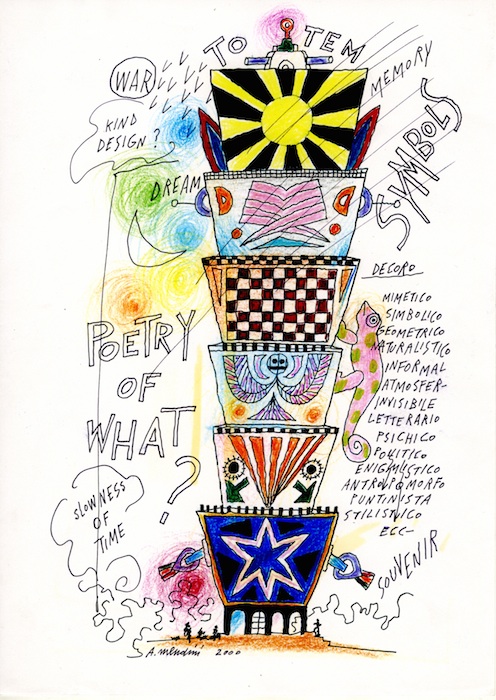 TO TEM
WAR
MEMORY
KIND
DESIGN?
SYMBOLS
DREAM
DECORO
MIMETICO
SIMBOLICO
GEOMETRICO
NATURALISTICO
INFORMAL
ATMOSFER-
INVISIBILE
LETTERARIO
PSICHICO
POLITICO
ENIGMISTICO
ANTROPOMORFO
PUNTINISTA
STILISTICO
ECC-
POETRY
OF
WHAT
?
SLOWNESS
OF
TIME
SOUVENIR
A. Mendini 2000